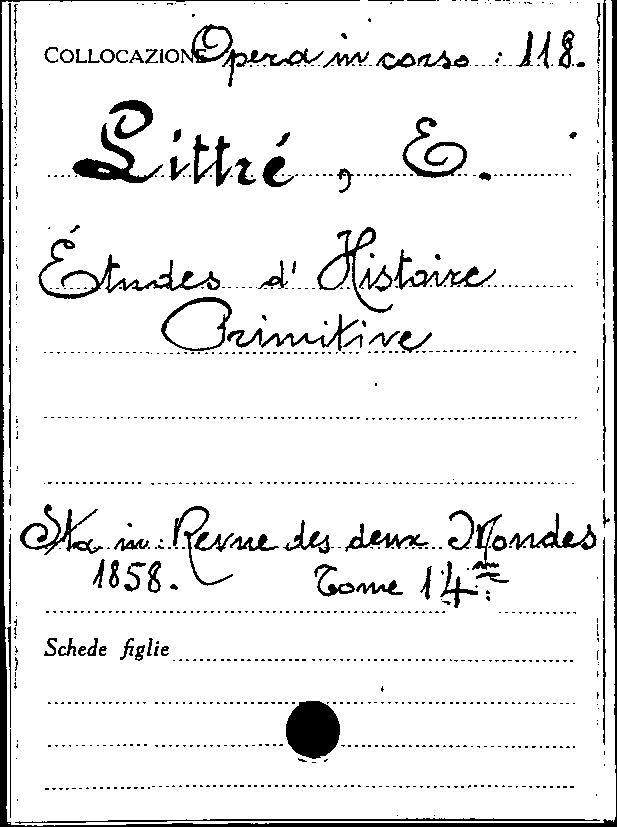 COLLOCAZIONE Opera in corso : 118.
Littré, E.
Études d'Histoire
Primitive
Sta in: Revue des deux Mondes
1858. Tome 14me:
Schede figlie